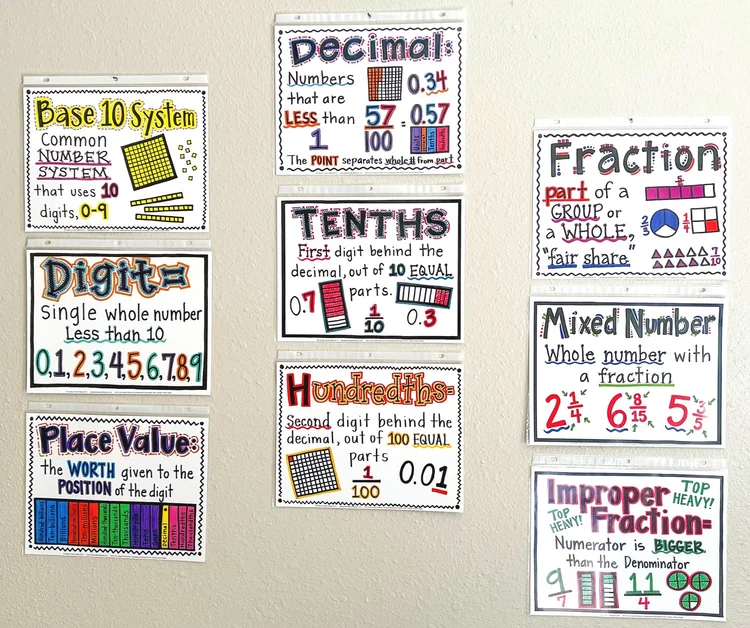 Base 10 System
Common
NUMBER
SYSTEM
that uses 10
digits, 0-9
Digit=
Single whole number
Less than 10
0,1,2,3,4,5,6,7,8,9
Place Value:
the WORTH given to the
POSITION of the digit
Billions
Thousands
Decimal
Tenths
Decimal:
Numbers
that are
LESS than
1
0.34
57/100 = 0.57
Tenths
The POINT separates whole # from part
TENTHS
First digit behind the
decimal, out of 10 EQUAL
parts.
0.7
1/10
0.3
Hundredths=
Second digit behind the
decimal, out of 100 EQUAL
parts
1/100
0.01
Fraction
part of a
GROUP or
a WHOLE,
"fair share"
5/5
2/3
1/4
7/10
Mixed Number
Whole number with
a fraction
2 1/4
6 8/15
5
Improper
Fraction=
TOP
HEAVY!
TOP
HEAVY!
Numerator is BIGGER
than the Denominator
9/7
11/4